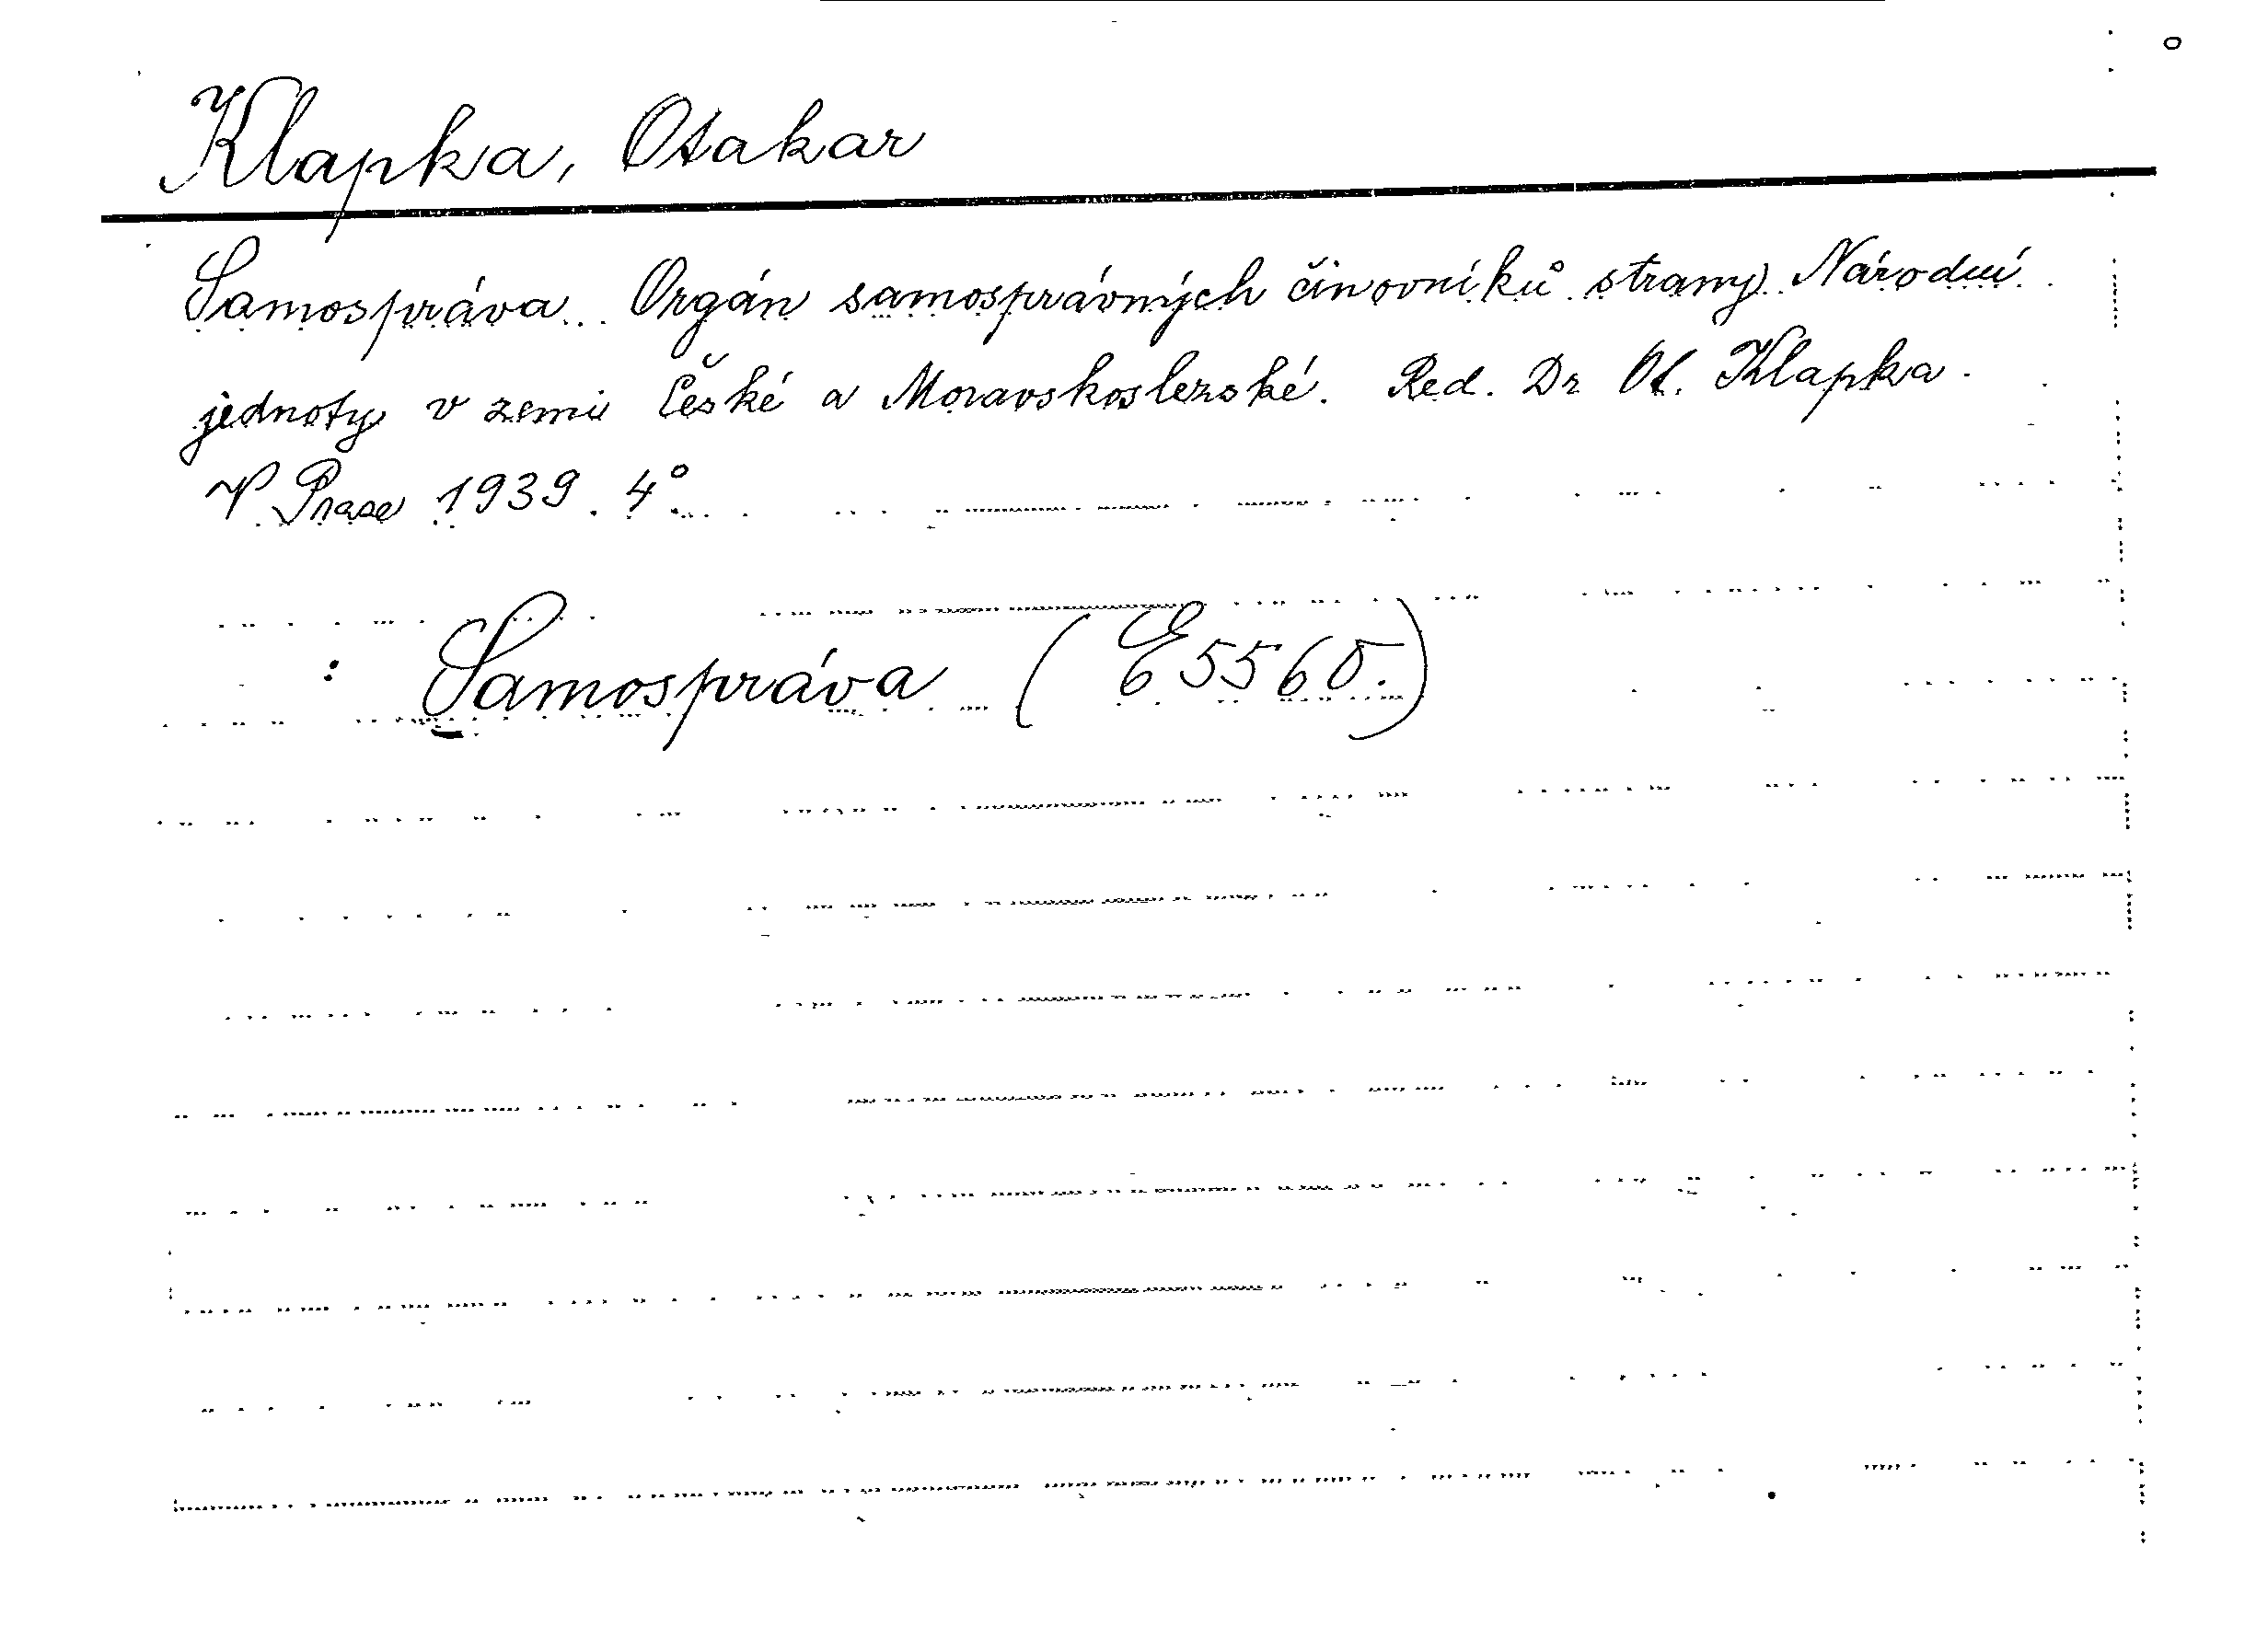 Klapka, Otakar
Samospráva. Orgán samosprávných činovníků strany Národní
jednoty v zemi České a Moravskoslezské. Red. Dr Ot. Klapka.
V Praze 1939. 4°.
: Samospráva (E 5560.)